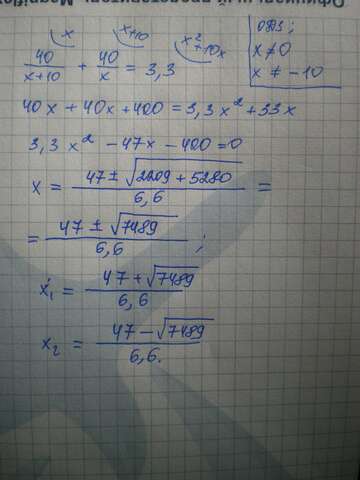 x x+10 x²+10x
40/(x+10) + 40/x = 3,3
ОДЗ:
x ≠ 0
x ≠ -10
40x + 40x + 400 = 3,3x² + 33x
3,3x² - 47x - 400 = 0
x = (47 ± √(2209 + 5280))/6,6 =
= (47 ± √7489)/6,6 ;
x₁ = (47 + √7489)/6,6
x₂ = (47 - √7489)/6,6.